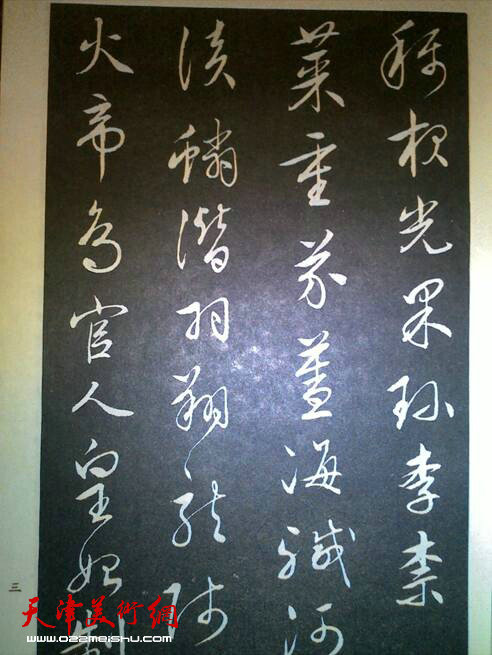 稱夜光果珍李柰
菜重芥薑海鹹河
淡鱗潛羽翔龍師
火帝鳥官人皇始制
三
天津美術網
www.022meishu.com